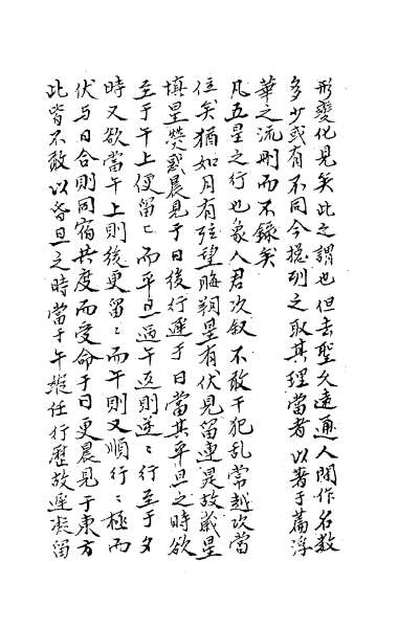 形變化見矣此之謂也但去聖久遠通人間作名数
多少或有不同今揔列之取其理當者以著于篇浮
華之流刪而不録矣
凡五星之行也象人君次叙不敢干犯乱常越次當
位矣猶如月有弦望晦朔星有伏見留連是故嵗星
填星熒惑晨見于日後行遲于日當其平旦之時欲
至于午上便留〻而平旦過午返則逆〻行至于夕
時又欲當午上則後更留〻而午則又順行〻極而
伏与日合則同宿共度而受命于日更晨見于東方
此皆不敢以昏旦之時當于午縱任行歷故遲凝留